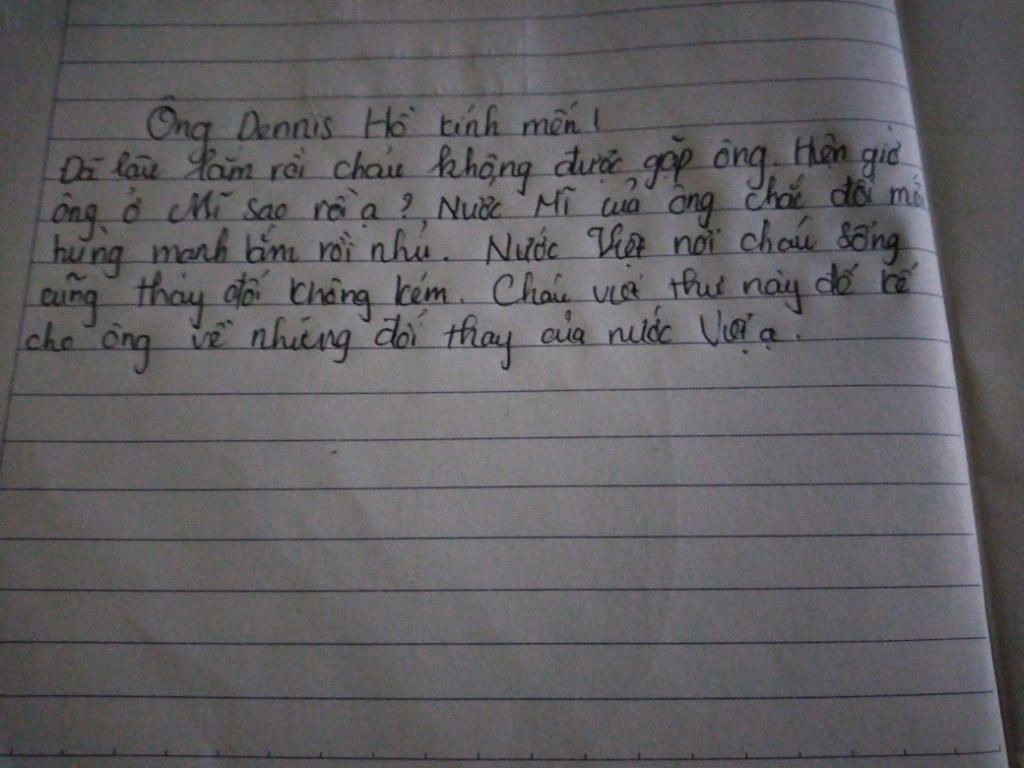 Ông Dennis Hồ kính mến!
Đã lâu lắm rồi cháu không được gặp ông. Hiện giờ
ông ở Mĩ sao rồi ạ? Nước Mĩ của ông chắc đổi mới
hùng mạnh lắm rồi nhủ. Nước Việt nơi cháu sống
cũng thay đổi không kém. Cháu viết thư này để kể
cho ông về những đổi thay của nước Việt ạ.